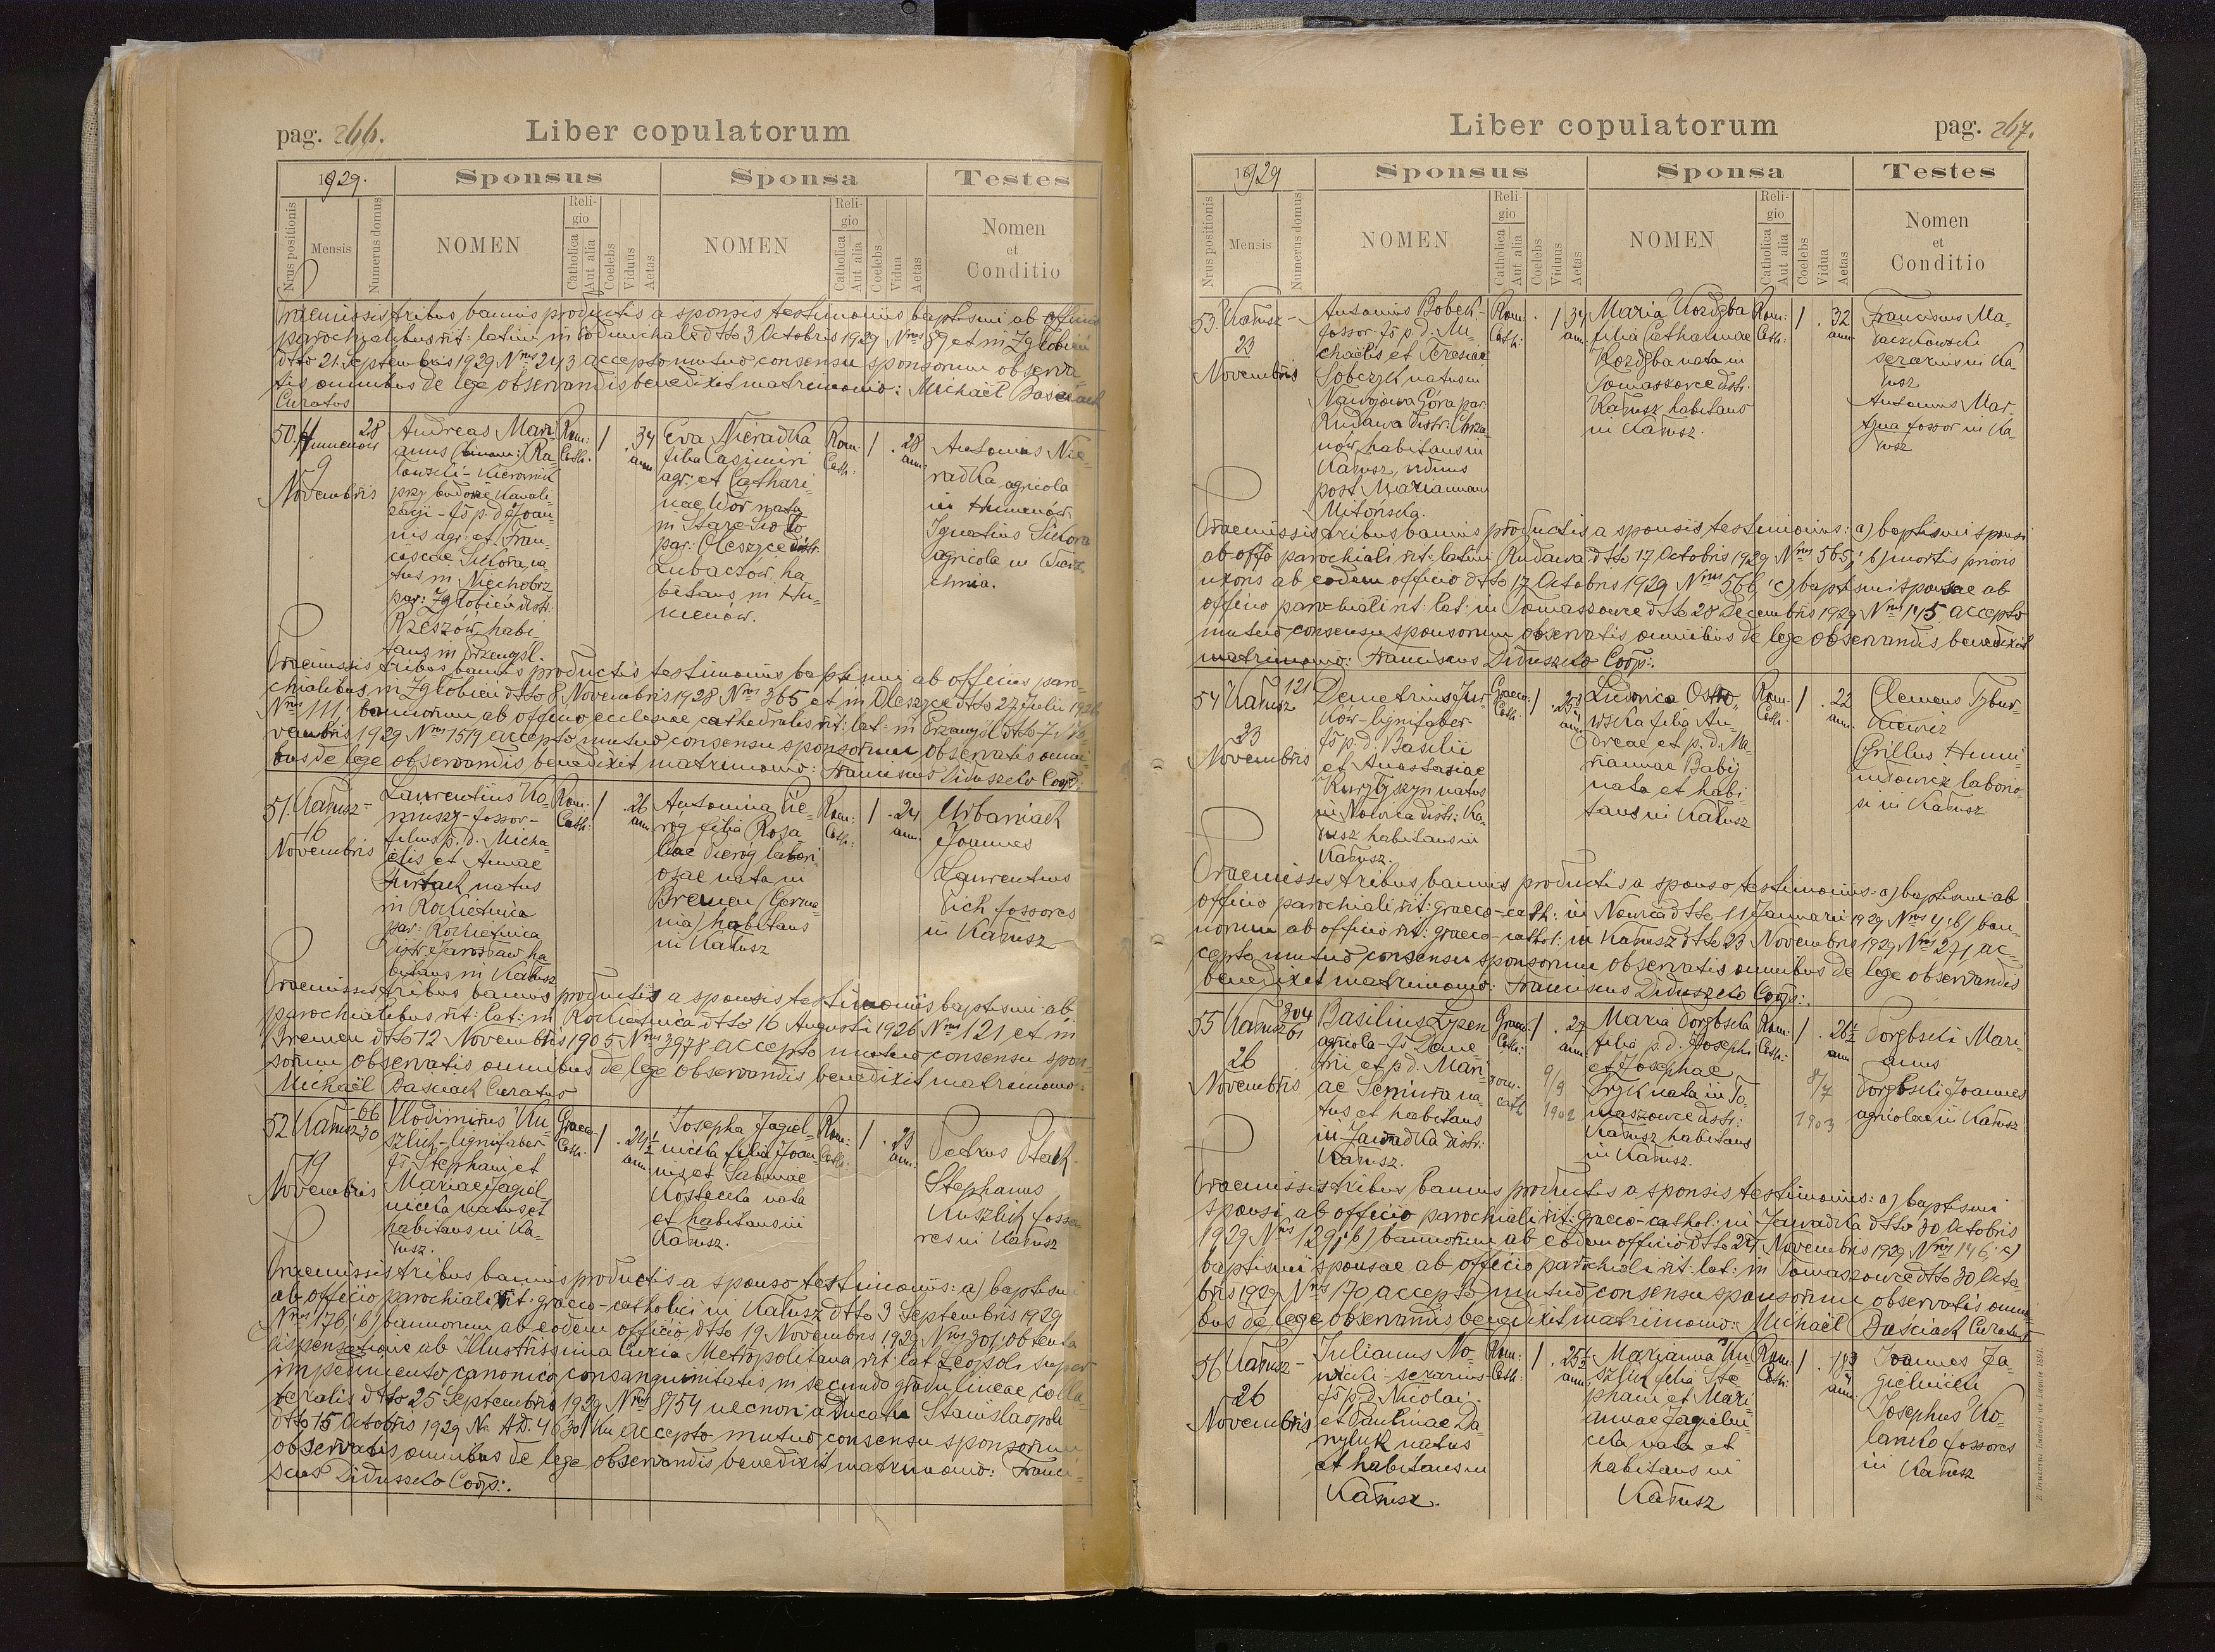 pag. 266.
Liber copulatorum
1929.
Sponsus
Sponsa
Testes
Nrus positionis
Mensis
Numerus domus
NOMEN
Religio
Catholica
Aut alia
Coelebs
Viduus
Aetas
NOMEN
Religio
Catholica
Aut alia
Coelebs
Vidua
Aetas
Nomen
et
Conditio
Praemissis tribus bannis productis a sponsis testimoniis baptismi ab officiis
parochialibus rit: latini in dtto 3 Octobris 1929 Nrus 89 et in Zgłobień
dtto 21. Septembris 1929 Nrus 243 accepto mutuo consensu sponsorum observa
tis omnibus de lege observandis benedixit matrimonio: Michaël Basciach
Curatus
50.
Humenów
28
9
Novembris
Andreas Mari
anus (binom:) Ra
towski - Kierownik
przy budowie Kanali-
zacji - fs p. d. Joan-
nis agr: et Fran-
ciscae Sikora, na
tus in Niechobrz
par: Zgłobień distr:
Rzeszów, habi-
tans in Przemyśl.
Rom:
Cath:
1
34
ann
Eva Nieradka
filia Casimiri
agr: et Cathari-
nae Wór nata
in Stare Sioło
par: Oleszyce distr:
Lubaczów, ha
bitans in Hu-
menów.
Rom:
Cath:
1
28
ann:
Antonius Nie-
radka agricola
in Humenów
Ignatius Sikora
agricola in
chnia.
Praemissis tribus bannis productis testimoniis baptismi ab officiis paro-
chialibus in Zgłobień dtto 8 Novembris 1928 Nrus 365 et in Oleszyce dtto 27 Julii
Nrus 111 bannorum ab officio ecclesiae cathedralis rit: lat: in Przemyśl dtto 7. No-
vembris 1929 Nrus 1519 accepto mutuo consensu sponsorum observatis omni-
bus de lege observandis benedixit matrimonio: Franciscus Diduszko Coop:
51.
Kałusz -
16
Novembris
Laurentius Ko-
muszy - fossor -
filius p. d. Micha-
ëlis et Annae
Furtach natus
in Rokietnica
par: Rokietnica
distr: Jarosław ha
bitans in Kałusz
Rom:
Cath:
1
26
ann
Antonina Pie-
róg filia Rosa
liae Pieróg labori-
osae nata in
Bremen (Germa-
nia) habitans
in Kałusz
Rom:
Cath:
1
24
ann.
Urbaniach
Joannes
Laurentius
Cich fossores
in Kałusz
Praemissis tribus bannis productis a sponsis testimoniis baptismi ab
parochialibus rit: lat: in Rokietnica dtto 16 Augusti 1926 Nrus 121 et in
Bremen dtto 12 Novembris 1905 Nrus 3978 accepto mutuo consensu spon-
sorum observatis omnibus de lege observandis benedixit matrimonio:
Michaël Basciach Curatus
52
Kałusz
66
30
19
Novembris
Vlodimirus Ku
szlich - lignifaber -
fs Stephani et
Mariae Jagiel-
nicka natus et
habitans in Ka-
łusz.
Graeco
Cath:
1
24½
ann
Josepha Jagiel-
nicka filia Joan-
nis et Sabinae
Kostecka nata
et habitans in
Kałusz.
Rom:
Cath:
1
23
ann.
Petrus Ptach.
Stephanus
Kuszlich fosso
res in Kałusz
Praemissis tribus bannis productis a sponso testimoniis: a) baptismi
ab officio parochiali rit: graeco-catholici in Kałusz dtto 3 Septembris 1929
Nrus 176; b) bannorum ab eodem officio dtto 19 Novembris 1929 Nrus 301; obtenta
dispensatione ab Illustrissima Curia Metropolitana rit: lat: Leopoli super
impedimento canonico consanguinitatis in secundo gradu lineae colla-
teralis dtto 25 Septembris 1929 Nrus 8754 necnon a Ducatu Stanislaopoli
dtto 15 Octobris 1929 Nr. AD. 4630 accepto mutuo consensu sponsorum
observatis omnibus de lege observandis benedixit matrimonio: Franci-
scus Diduszko Coop:.
Liber copulatorum
pag. 267.
1929
Sponsus
Sponsa
Testes
Nrus positionis
Mensis
Numerus domus
NOMEN
Religio
Catholica
Aut alia
Coelebs
Viduus
Aetas
NOMEN
Religio
Catholica
Aut alia
Coelebs
Vidua
Aetas
Nomen
et
Conditio
53.
Kałusz -
23
Novembris
Antonius Bobech -
fossor - fs p. d. Mi-
chaëlis et Teresiae
Sobczyk natus in
Nawojowa Góra par:
Rudawa distr: Chrza-
nów, habitans in
Kałusz, viduus
post Mariannam
Mitońska.
Rom:
Cath:
1
34
ann
Maria Kozdęba
filia Catharinae
Kozdęba nata in
Tomaszowce distr:
Kałusz habitans
in Kałusz.
Rom:
Cath:
1
32
ann
Franciscus Ma-
raszkowski
serarius in Ka-
łusz
Antonius Mar-
tyna fossor in Ka-
łusz
Praemissis tribus bannis productis a sponsis testimoniis: a) baptismi sponsi
ab offo parochiali rit: latini Rudawa dtto 17 Octobris 1929 Nrus 565; b) mortis prioris
uxoris ab eodem officio dtto 17 Octobris 1929 Nrus 566 c) baptismi sponsae ab
officio parochiali rit: lat: in Tomaszowce dtto 28 Decembris 1929 Nrus 175 accepto
mutuo consensu sponsorum observatis omnibus de lege observandis benedixit
matrimonio: Franciscus Diduszko Coop:.
54
Kałusz
121
23
Novembris
Demetrius Jur-
ków - lignifaber
fs p. d. Basilii
et Anastasiae
Kurytyszyn natus
in Nowica distr: Ka-
łusz habitans in
Kałusz.
Graeco:
Cath:
1
25½
ann
Ludovica Ostro-
wska filia An-
dreae et p. d. Ma-
riannae Babij
nata et habi-
tans in Kałusz
Rom:
Cath:
1
22
ann.
Clemens Tybur-
kiewicz
Cyrillus Humi-
niłowicz laborio-
si in Kałusz
Praemissis tribus bannis productis a sponso testimoniis: a) baptismi ab
officio parochiali rit: graeco-cath: in Nowica dtto 11 Januarii 1929 Nrus 4; b) ban-
norum ab officio rit: graeco-cathol: in Kałusz dtto 23 Novembris 1929 Nrus 271 ac-
cepto mutuo consensu sponsorum observatis omnibus de lege observandis
benedixit matrimonio: Franciscus Diduszko Coop:.
55
Kałusz
304
61
26
Novembris
Basilius Zypen
agricola - fs Deme-
trii et p. d. Mari-
ae Semura na
tus et habitans
in Zawadka distr:
Kałusz.
Graeco:
Cath:
rom.
cath
1
27
ann
9/9
1902
Maria Porębska
filia p. d. Josephi
et Josephae
Trzyk nata in To-
maszowce distr:
Kałusz habitans
in Kałusz.
Rom:
Cath:
1
26½
ann
8/7
1903
Porębski Mari-
anus
Porębski Joannes
agricolae in Kałusz
Praemissis tribus bannis productis a sponsis testimoniis: a) baptismi
sponsi ab officio parochiali rit: graeco-cathol: in Zawadka dtto 30 Octobris
1929 Nrus 129; b) bannorum ab eodem officio dtto 24 Novembris 1929 Nrus 146; c)
baptismi sponsae ab officio parochiali rit: lat: in Tomaszowce dtto 30 Octo-
bris 1929 Nrus 170 accepto mutuo consensu sponsorum observatis omni-
bus de lege observandis benedixit matrimonio: Michaël Basciach Curatus
56
Kałusz -
26
Novembris
Julianus No-
wicki - serarius
fs p. d. Nicolai
et Paulinae Da-
nyluk natus
et habitans in
Kałusz.
Rom:
Cath:
1
25½
ann
Marianna Ku
szlich filia Ste-
phani et Mari-
annae Jagielni-
cka nata et
habitans in
Kałusz
Rom:
Cath:
1
18
ann
Joannes Ja-
gielnicki
Josephus Ko-
lanko fossores
in Kałusz
Z Drukarni Ludowej we Lwowie 1891.